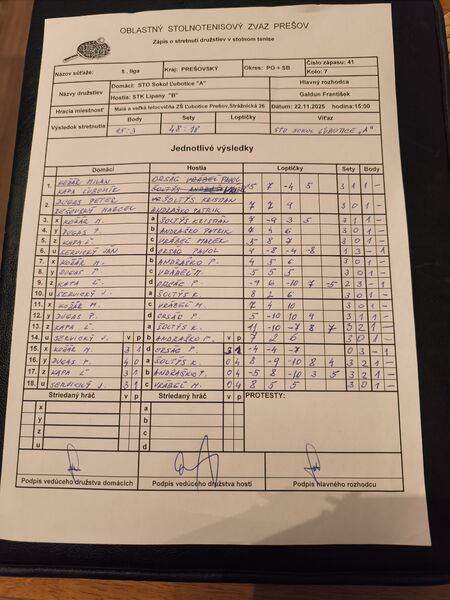 OBLASTNÝ STOLNOTENISOVÝ ZVAZ PREŠOV
Zápis o stretnutí družstiev v stolnom tenise
Názov súťaže: 5 . liga Kraj: PREŠOVSKÝ Okres: PO + SB Číslo zápasu: 41
Kolo: 7
Názov družstiev Domáci: STO Sokol Ľubotice "A" Hlavný rozhodca
Hostia: STK Lipany "B" Galdun František
Hracia miestnosť Malá a veľká telocvičňa ZŠ Ľubotice Prešov,Strážnická 26 Dátum: 22.11.2025 hodina:15:00
Výsledok stretnutia Body Sety Loptičky Víťaz
15:3 48:18 STO SOKOL ĽUBOTICE "A"
Jednotlivé výsledky
Domáci Hostia Loptičky Sety Body
1. KOŽÁR MILAN ORSÁG PAVOL
KAPA ĽUBOMÍR ŠOLTÝS 5 7 -4 5 3 1 1 -
2. DUGAS PETER ŠOLTÝS KRISTIAN
MARCEL ANDRAŠKO PATRIK 7 7 9 3 0 1 -
3. x KOŽÁR M. a ŠOLTÝS KRISTIÁN 7 -9 3 5 3 1 1 -
4. y DUGAS P. b ANDRAŠKO PATRIK 7 4 6 3 0 1 -
5. z KAPA Ľ. c VRÁBEĽ MAREK 5 8 7 3 0 1 -
6. u SERVICKÝ JÁN d ORSÁG PAVOL 4 -8 -4 -8 1 3 - 1
7. x KOŽÁR M. b ANDRAŠKO P. 4 5 6 3 0 1 -
8. y DUGAS P. c VRÁBEĽ M. 5 5 5 3 0 1 -
9. z KAPA Ľ. d ORSÁG P. -9 6 -10 7 -5 2 3 - 1
10. u SERVICKÝ J. a ŠOLTÝS K. 8 2 6 3 0 1 -
11. x KOŽÁR M. c VRÁBEĽ M. 7 4 10 3 0 1 -
12. y DUGAS P. d ORSÁG P. -5 10 10 9 3 1 1 -
13. z KAPA Ľ. a ŠOLTÝS K. 11 -10 -7 8 7 3 2 1 -
14. u SERVICKÝ J. v p b ANDRAŠKO P. v p 7 2 6 3 0 1 -
15. x KOŽÁR M. 3 1 d ORSÁG P. -4 -4 -7 0 3 - 1
16. y DUGAS P. 4 0 a ŠOLTÝS K. 0 4 8 -9 -10 8 4 3 2 1 -
17. z KAPA Ľ 3 1 b ANDRAŠKO P. 0 4 -5 8 -10 3 5 3 2 1 -
18. u SERVICKÝ J. 3 1 c VRÁBEĽ M. 0 4 8 5 5 3 0 1 -
Striedaný hráč v p Striedaný hráč v p PROTESTY:
x a
y b
z c
u d
Podpis vedúceho družstva domácich Podpis vedúceho družstva hostí Podpis hlavného rozhodcu